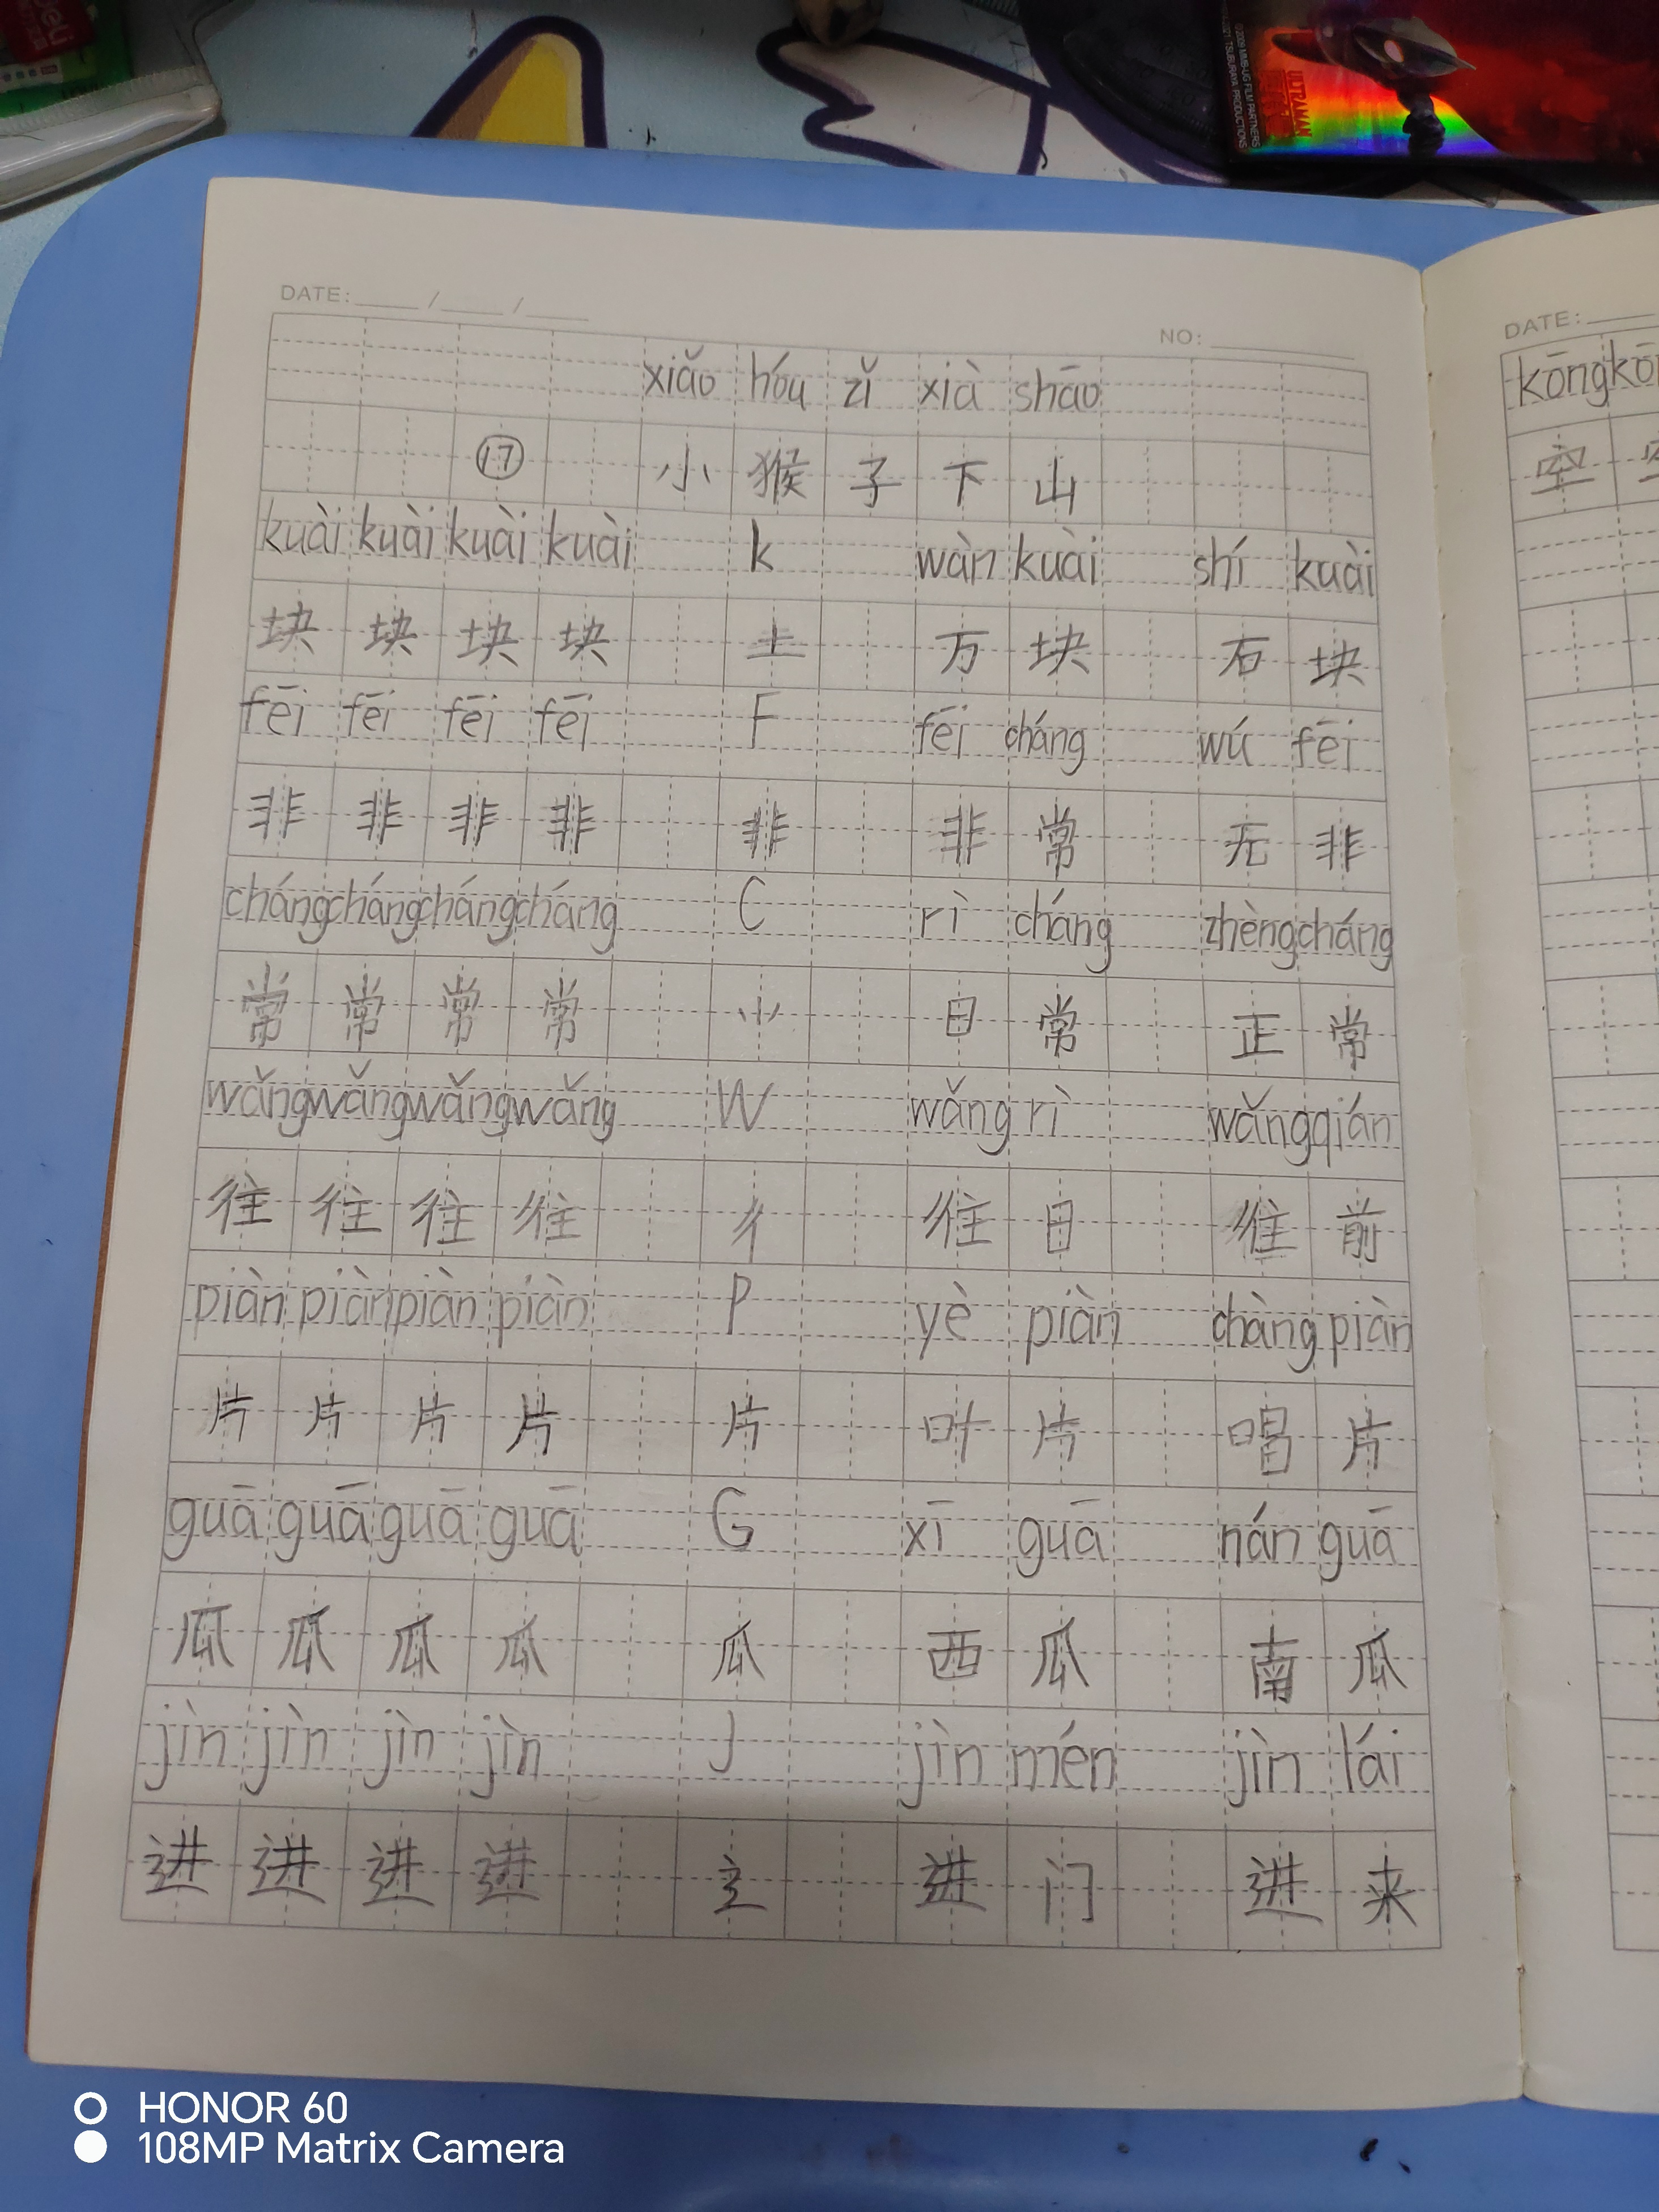 deli
ULTRAMAN
DATE: / /
NO:
xiǎo hóu zǐ xià shāo
⑰ 小猴子下山
kuài kuài kuài kuài k wàn kuài shí kuài
块 块 块 块 土 万块 石块
fēi fēi fēi fēi F fēi cháng wú fēi
非 非 非 非 非 非常 无非
cháng cháng cháng cháng C rì cháng zhèng cháng
常 常 常 常 ⺌ 日常 正常
wǎng wǎng wǎng wǎng W wǎng rì wǎng qián
往 往 往 往 彳 往日 往前
piàn piàn piàn piàn P yè piàn chàng piàn
片 片 片 片 片 叶片 唱片
guā guā guā guā G xī guā nán guā
瓜 瓜 瓜 瓜 瓜 西瓜 南瓜
jìn jìn jìn jìn J jìn mén jìn lái
进 进 进 进 辶 进门 进来
DATE:
kōng
空
HONOR 60
108MP Matrix Camera